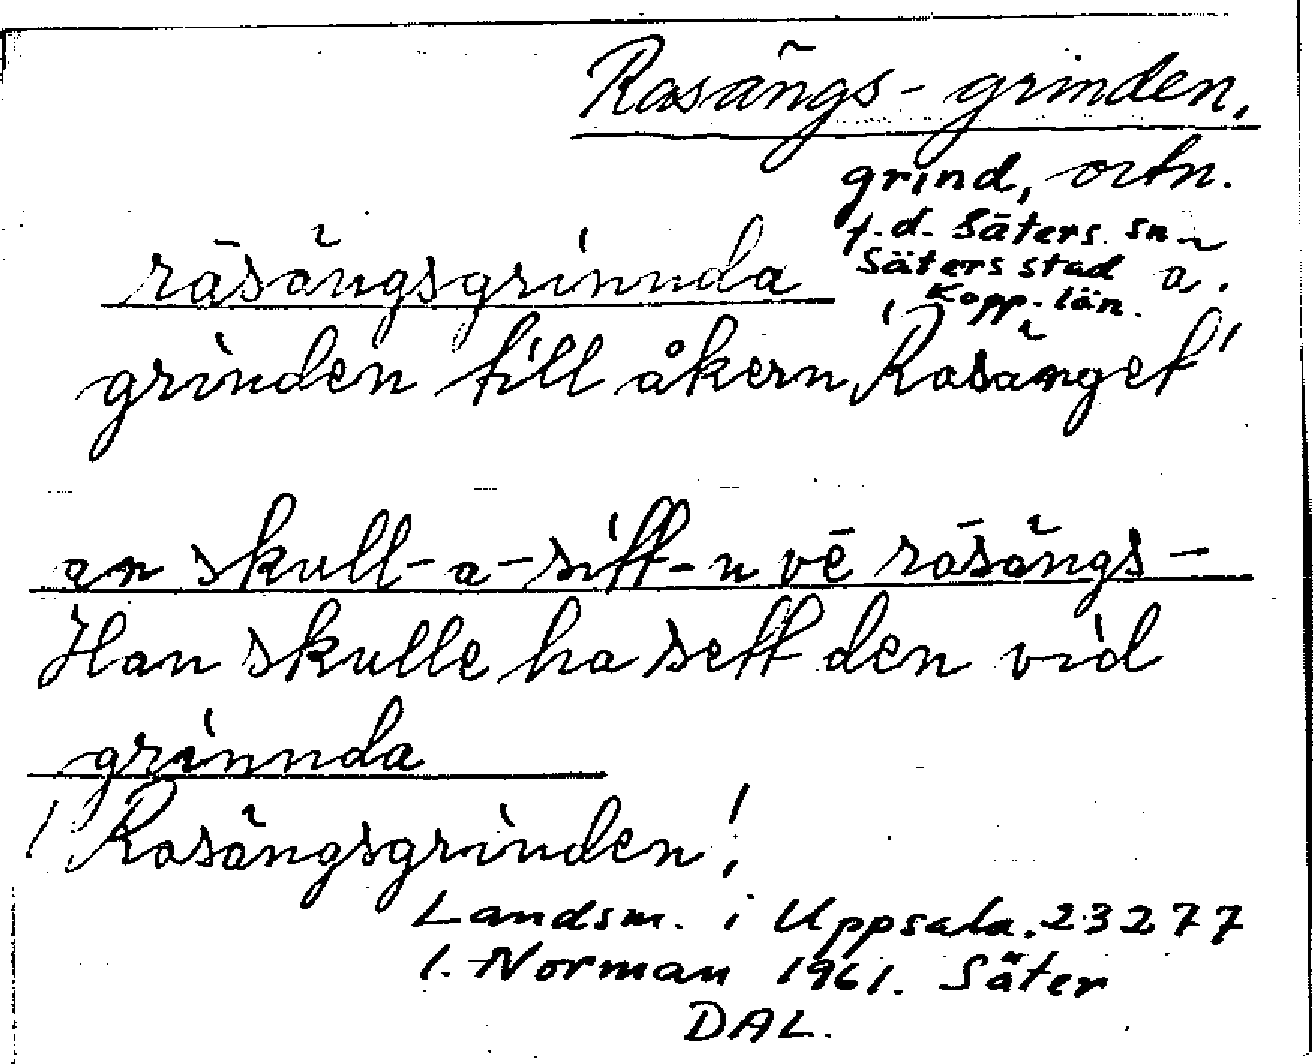 Rosängs-grinden,
grind, ortn.
f.d. Säters sn
Säters stad ä.
Kopp. län.
råsängsgrinnda
grinden till åkern 'Rosänget'
an skull-a-sitt-n vē råsängs-
Han skulle ha sett den vid
grinnda
'Rosängsgrinden'.
Landsm. i Uppsala. 23277
I. Norman 1961. Säter
DAL.